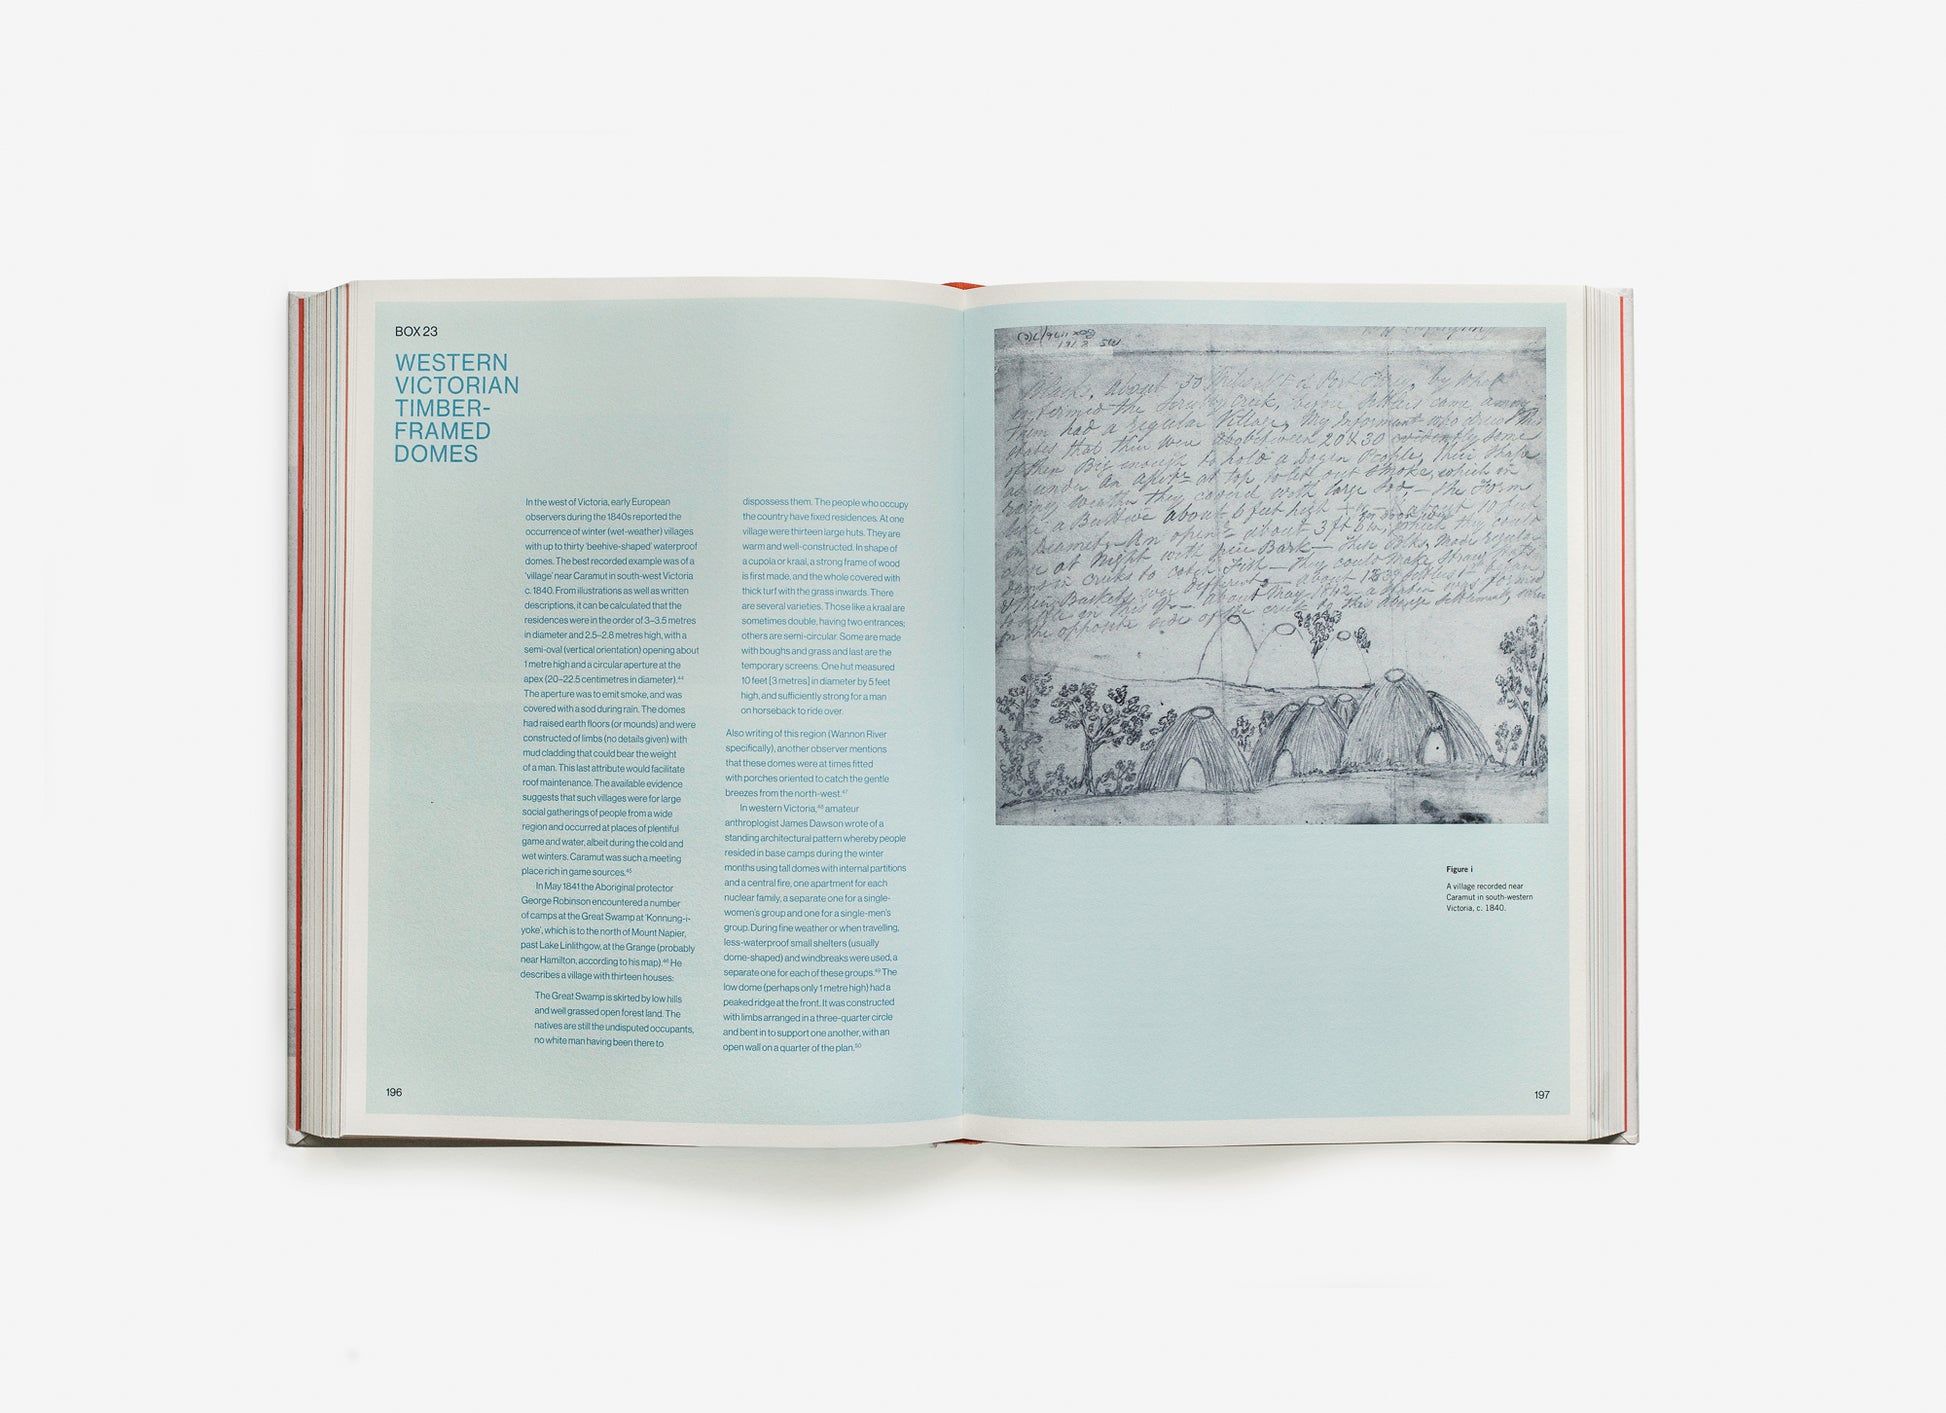 BOX 23
WESTERN
VICTORIAN
TIMBER-
FRAMED
DOMES
In the west of Victoria, early European
observers during the 1840s reported the
occurrence of winter (wet-weather) villages
with up to thirty 'beehive-shaped' waterproof
domes. The best recorded example was of a
'village' near Caramut in south-west Victoria
c. 1840. From illustrations as well as written
descriptions, it can be calculated that the
residences were in the order of 3–3.5 metres
in diameter and 2.5–2.8 metres high, with a
semi-oval (vertical orientation) opening about
1 metre high and a circular aperture at the
apex (20–22.5 centimetres in diameter).44
The aperture was to emit smoke, and was
covered with a sod during rain. The domes
had raised earth floors (or mounds) and were
constructed of limbs (no details given) with
mud cladding that could bear the weight
of a man. This last attribute would facilitate
roof maintenance. The available evidence
suggests that such villages were for large
social gatherings of people from a wide
region and occurred at places of plentiful
game and water, albeit during the cold and
wet winters. Caramut was such a meeting
place rich in game sources.45
In May 1841 the Aboriginal protector
George Robinson encountered a number
of camps at the Great Swamp at 'Konnung-i-
yoke', which is to the north of Mount Napier,
past Lake Linlithgow, at the Grange (probably
near Hamilton, according to his map).46 He
describes a village with thirteen houses:
The Great Swamp is skirted by low hills
and well grassed open forest land. The
natives are still the undisputed occupants,
no white man having been there to
dispossess them. The people who occupy
the country have fixed residences. At one
village were thirteen large huts. They are
warm and well-constructed. In shape of
a cupola or kraal, a strong frame of wood
is first made, and the whole covered with
thick turf with the grass inwards. There
are several varieties. Those like a kraal are
sometimes double, having two entrances;
others are semi-circular. Some are made
with boughs and grass and last are the
temporary screens. One hut measured
10 feet [3 metres] in diameter by 5 feet
high, and sufficiently strong for a man
on horseback to ride over.
Also writing of this region (Wannon River
specifically), another observer mentions
that these domes were at times fitted
with porches oriented to catch the gentle
breezes from the north-west.47
In western Victoria,48 amateur
anthroplogist James Dawson wrote of a
standing architectural pattern whereby people
resided in base camps during the winter
months using tall domes with internal partitions
and a central fire, one apartment for each
nuclear family, a separate one for a single-
women's group and one for a single-men's
group. During fine weather or when travelling,
less-waterproof small shelters (usually
dome-shaped) and windbreaks were used, a
separate one for each of these groups.49 The
low dome (perhaps only 1 metre high) had a
peaked ridge at the front. It was constructed
with limbs arranged in a three-quarter circle
and bent in to support one another, with an
open wall on a quarter of the plan.50
196
about 30 of Port Fairy, by what
informed the Creek, before Settlers came among
them had a regular Village, My Informant who drew this
states that there were between 20 & 30 some
of them Big enough to hold a Dozen People, their Shape
as under An at top to let out Smoke, which in
rainy weather they covered with large Sod, – the Form
like a Beehive about 6 feet high
in Diameter – An open about 3 ft 6 in, which they could
close at Night with Bark – Made regular
dams in creeks to catch Fish – they could make Strong
Baskets
on the opposite side of the creek
Figure i
A village recorded near
Caramut in south-western
Victoria, c. 1840.
197